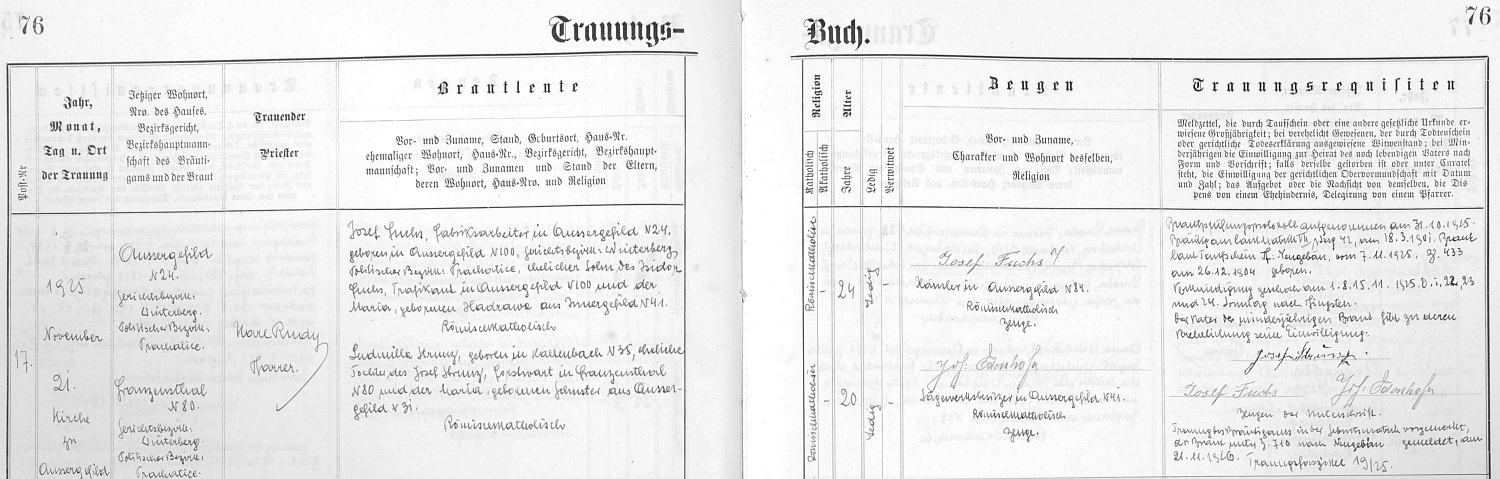 76
Trauungs-
Buch.
76
Post-Nr
Jahr,
Monat,
Tag u. Ort
der Trauung
Jetziger Wohnort,
Nro. des Hauses,
Bezirksgericht,
Bezirkshauptmann-
schaft des Bräuti-
gams und der Braut
Trauender
Priester
Brautleute
Vor- und Zuname, Stand, Geburtsort, Haus-Nr.
ehemaliger Wohnort, Haus-Nr., Bezirksgericht, Bezirkshaupt-
mannschaft; Vor- und Zunamen und Stand der Eltern,
deren Wohnort, Haus-Nro. und Religion
17.
1925
November
21.
Kirche
zu
Aussergefild
Aussergefild
N24.
Gerichtsbezirk:
Winterberg.
Politischer Bezirk:
Prachatice.
Franzenthal
N80.
Gerichtsbezirk:
Winterberg.
Politischer Bezirk:
Prachatice.
Rudy
Pfarrer.
Josef Fuchs, Fabriksarbeiter in Aussergefild N24.
geboren in Aussergefild N100, Gerichtsbezirk: Winterberg,
Politischer Bezirk: Prachatice, ehelicher Sohn des Isidor
Fuchs, Trafikant in Aussergefild N100 und der
Maria, geborenen Hadrawa aus Innergefild N41.
Römischkatholisch
Ludmille Strunz, geboren in Kaltenbach N35, eheliche
Tochter des Josef Strunz, Forstwart in Franzenthal
N80 und der Maria, geborenen Schuster aus Ausser-
gefild N31.
Römischkatholisch
Religion
Katholisch
Akatholisch
Alter
Jahre
Ledig
Verwitwet
Zeugen
Vor- und Zuname,
Charakter und Wohnort desselben,
Religion
Trauungsrequisiten
Meldzettel, die durch Taufschein oder eine andere gesetzliche Urkunde er-
wiesene Großjährigkeit; bei verehelicht Gewesenen, der durch Todtenschein
oder gerichtliche Todeserklärung ausgewiesene Witwenstand; bei Min-
derjährigen die Einwilligung zur Heirat des noch lebendigen Vaters nach
Form und Vorschrift; falls derselbe gestorben ist oder unter Curatel
steht, die Einwilligung der gerichtlichen Obervormundschaft mit Datum
und Zahl; das Aufgebot oder die Nachsicht von demselben, die Dis
pens von einem Ehehindernis, Delegirung von einem Pfarrer.
Römischkatholisch
24
Ledig
Josef Fuchs
Häusler in Aussergefild N84.
Römischkatholisch
Zeuge.
Römischkatholisch
20
Ledig
Jos: Edenhofer
Sägewerksbesitzer in Aussergefild N41.
Römischkatholisch
Zeuge.
Brautprüfungsprotokoll aufgenommen am 31.10.1925.
Bräutigam laut Matrik pag 42, am 18.3.1901. Braut
laut Taufschein Neugebäu, vom 7.11.1925. 433
am 26.12.1904 geboren.
Verkündigung geschah am 1.8.15.11.1925. 22, 23
und 24. Sonntag nach Pfingsten.
Der Vater der minderjährigen Braut gibt zu deren
Verehelichung seine Einwilligung.
Josef Strunz.
Josef Fuchs Jos: Edenhofer
Zeugen der Unterschrift.
Trauung des Bräutigams in der Geburtsmatrik vorgemerkt,
der Braut unter 710 nach Neugebäu gemeldet, am
21.11.1926. 19/25.